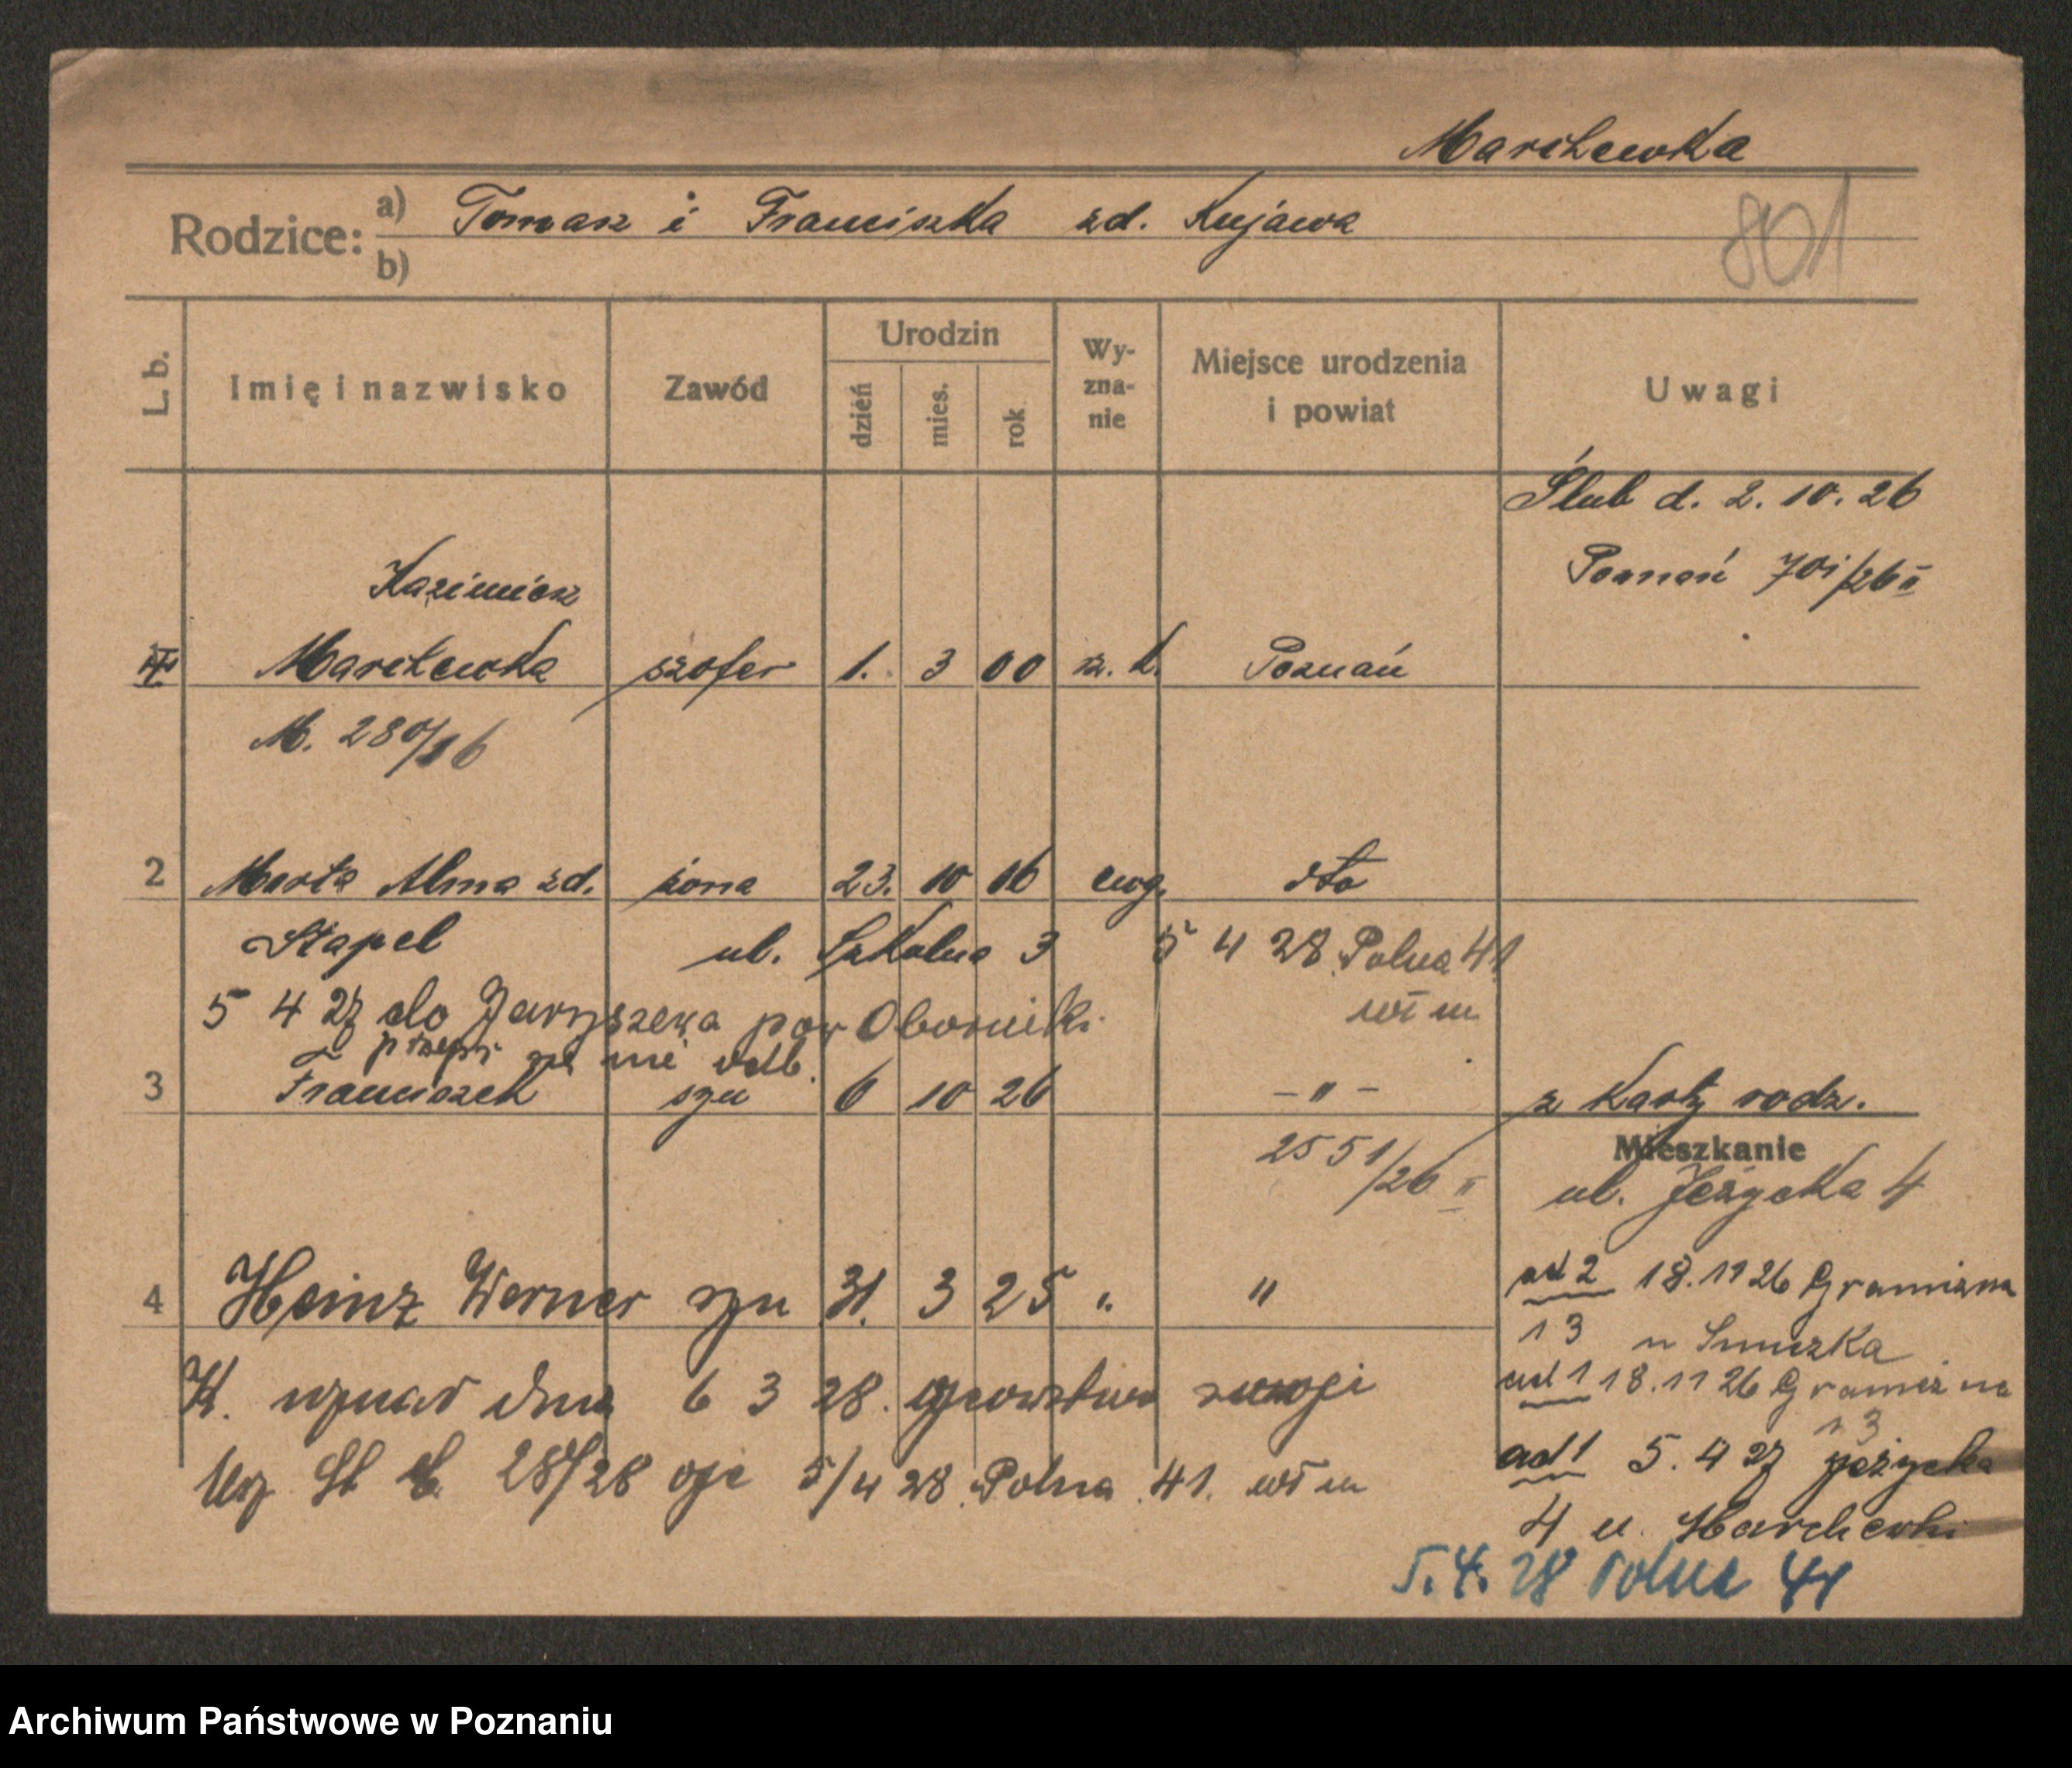 Marchewka
Rodzice: a) Tomasz i Franciszka zd. Kujawa
b)
801
L. b.
Imię i nazwisko
Zawód
Urodzin
dzień
mies.
rok
Wy-
zna-
nie
Miejsce urodzenia
i powiat
Uwagi
Ślub d. 2. 10. 26
Poznań 701/26 II
Kazimierz
Marchewka szofer 1. 3 00 rz. k. Poznań
M. 280/26
2 Marta Alma zd. żona 23. 10 06 ewg. dto
Stapel ul. Szkolna 3 5 4 28 Polna 41
wł m
5 4 27 do Jaryszewa pow Oborniki
przepr się nie odb.
3 Franciszek syn 6 10 26 - " - z karty rodz.
2551/26 II
Mieszkanie
ul. Jeżycka 4
4 Heinz Werner syn 31. 3 25 " "
ad 2 18.11 26 Graniczna
13 u Smuzka
K. uznał dnia 6 3 28. ojcowstwo
ad 1 18.11 26 Graniczna
13
28/28 5/4 28 Polna 41. wł m
ad 1 5. 4 27 Jeżycka
4 u. Marchewki
5. 4. 28 Polna 41